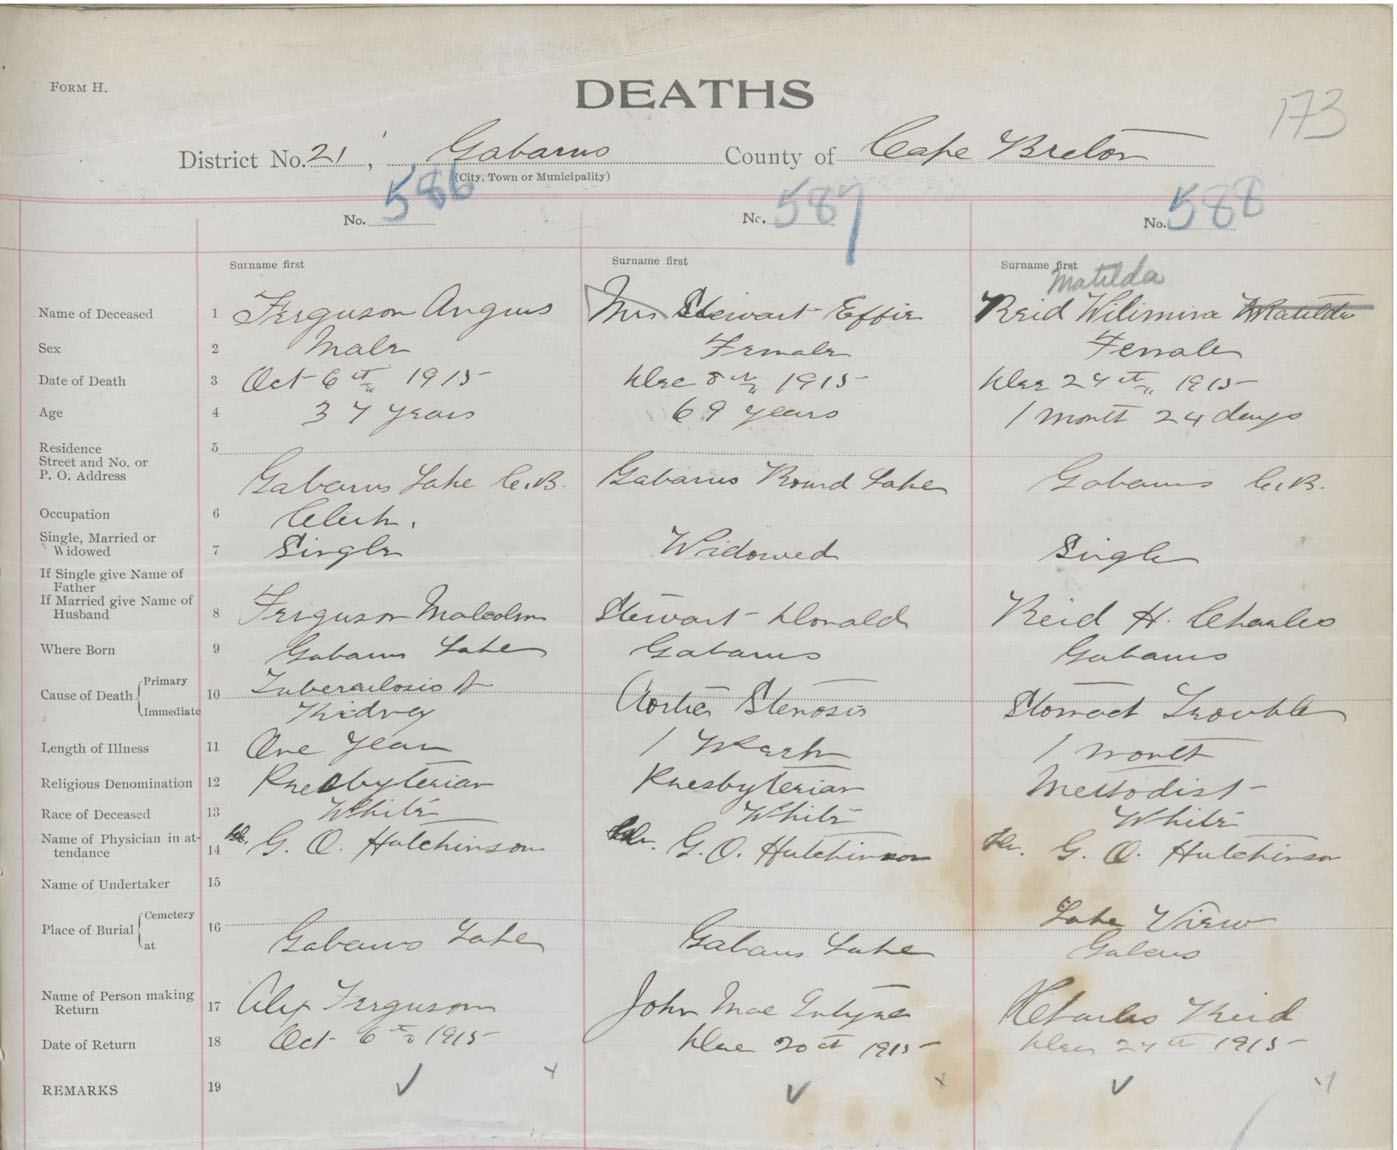 FORM H.
DEATHS
173
District No. 21, Gabarus County of Cape Breton
(City, Town or Municipality)
No. 586 No. 587 No. 588
Surname first Surname first Surname first
Matilda
Name of Deceased 1 Ferguson Angus Mrs Stewart Effie Reid Wilimina Matilda
Sex 2 Male Female Female
Date of Death 3 Oct 6th 1915 Dec 8th 1915 Dec 27th 1915
Age 4 37 years 69 years 1 month 24 days
Residence 5
Street and No. or
P. O. Address Gabarus Lake C.B. Gabarus Round Lake Gabarus C.B.
Occupation 6 Clerk.
Single, Married or
Widowed 7 Single Widowed Single
If Single give Name of
Father
If Married give Name of
Husband 8 Ferguson Malcolm Stewart Donald Reid H. Charles
Where Born 9 Gabarus Lake Gabarus Gabarus
Cause of Death Primary 10 Tuberculosis of Aortic Stenosis Stomact Trouble
Immediate Kidney
Length of Illness 11 One Year 1 Week 1 month
Religious Denomination 12 Presbyterian Presbyterian Methodist
Race of Deceased 13 White White White
Name of Physician in at-
tendance 14 Dr. G. O. Hutchinson Dr. G. O. Hutchinson Dr. G. O. Hutchinson
Name of Undertaker 15
Place of Burial Cemetery 16 Lake View
at Gabarus Lake Gabarus Lake Gabarus
Name of Person making
Return 17 Alex Ferguson John Mac Intyre Charles Reid
Date of Return 18 Oct 6th 1915 Dec 20th 1915 Dec 27th 1915
REMARKS 19